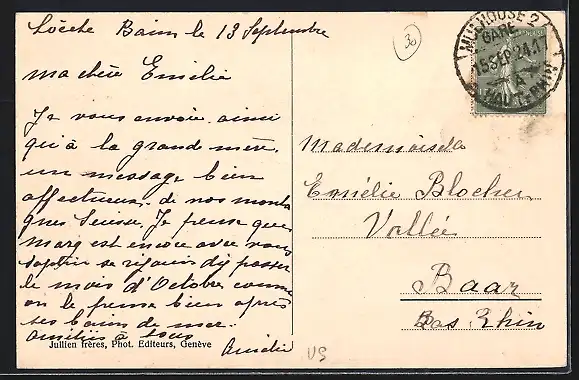 Loèche Bains le 13 Septembre
ma chère Emilie
Je vous envoie ainsi
qu'à la grand mère
un message bien
affectueux de nos monta
gnes Suisse. Je pense que
Marg est encore avec vous
se réjouis d'y passer
le mois d'Octobre comme
on le pense bien après
ses bains de mer.
amitiés à tous
Amélie
Jullien frères, Phot. Editeurs, Genève
30
MULHOUSE 2
GARE
15 SEP 24
HAUT-RHIN
Mademoiselle
Emélie Blocher
Vallée
Baar
Bas Rhin
VS